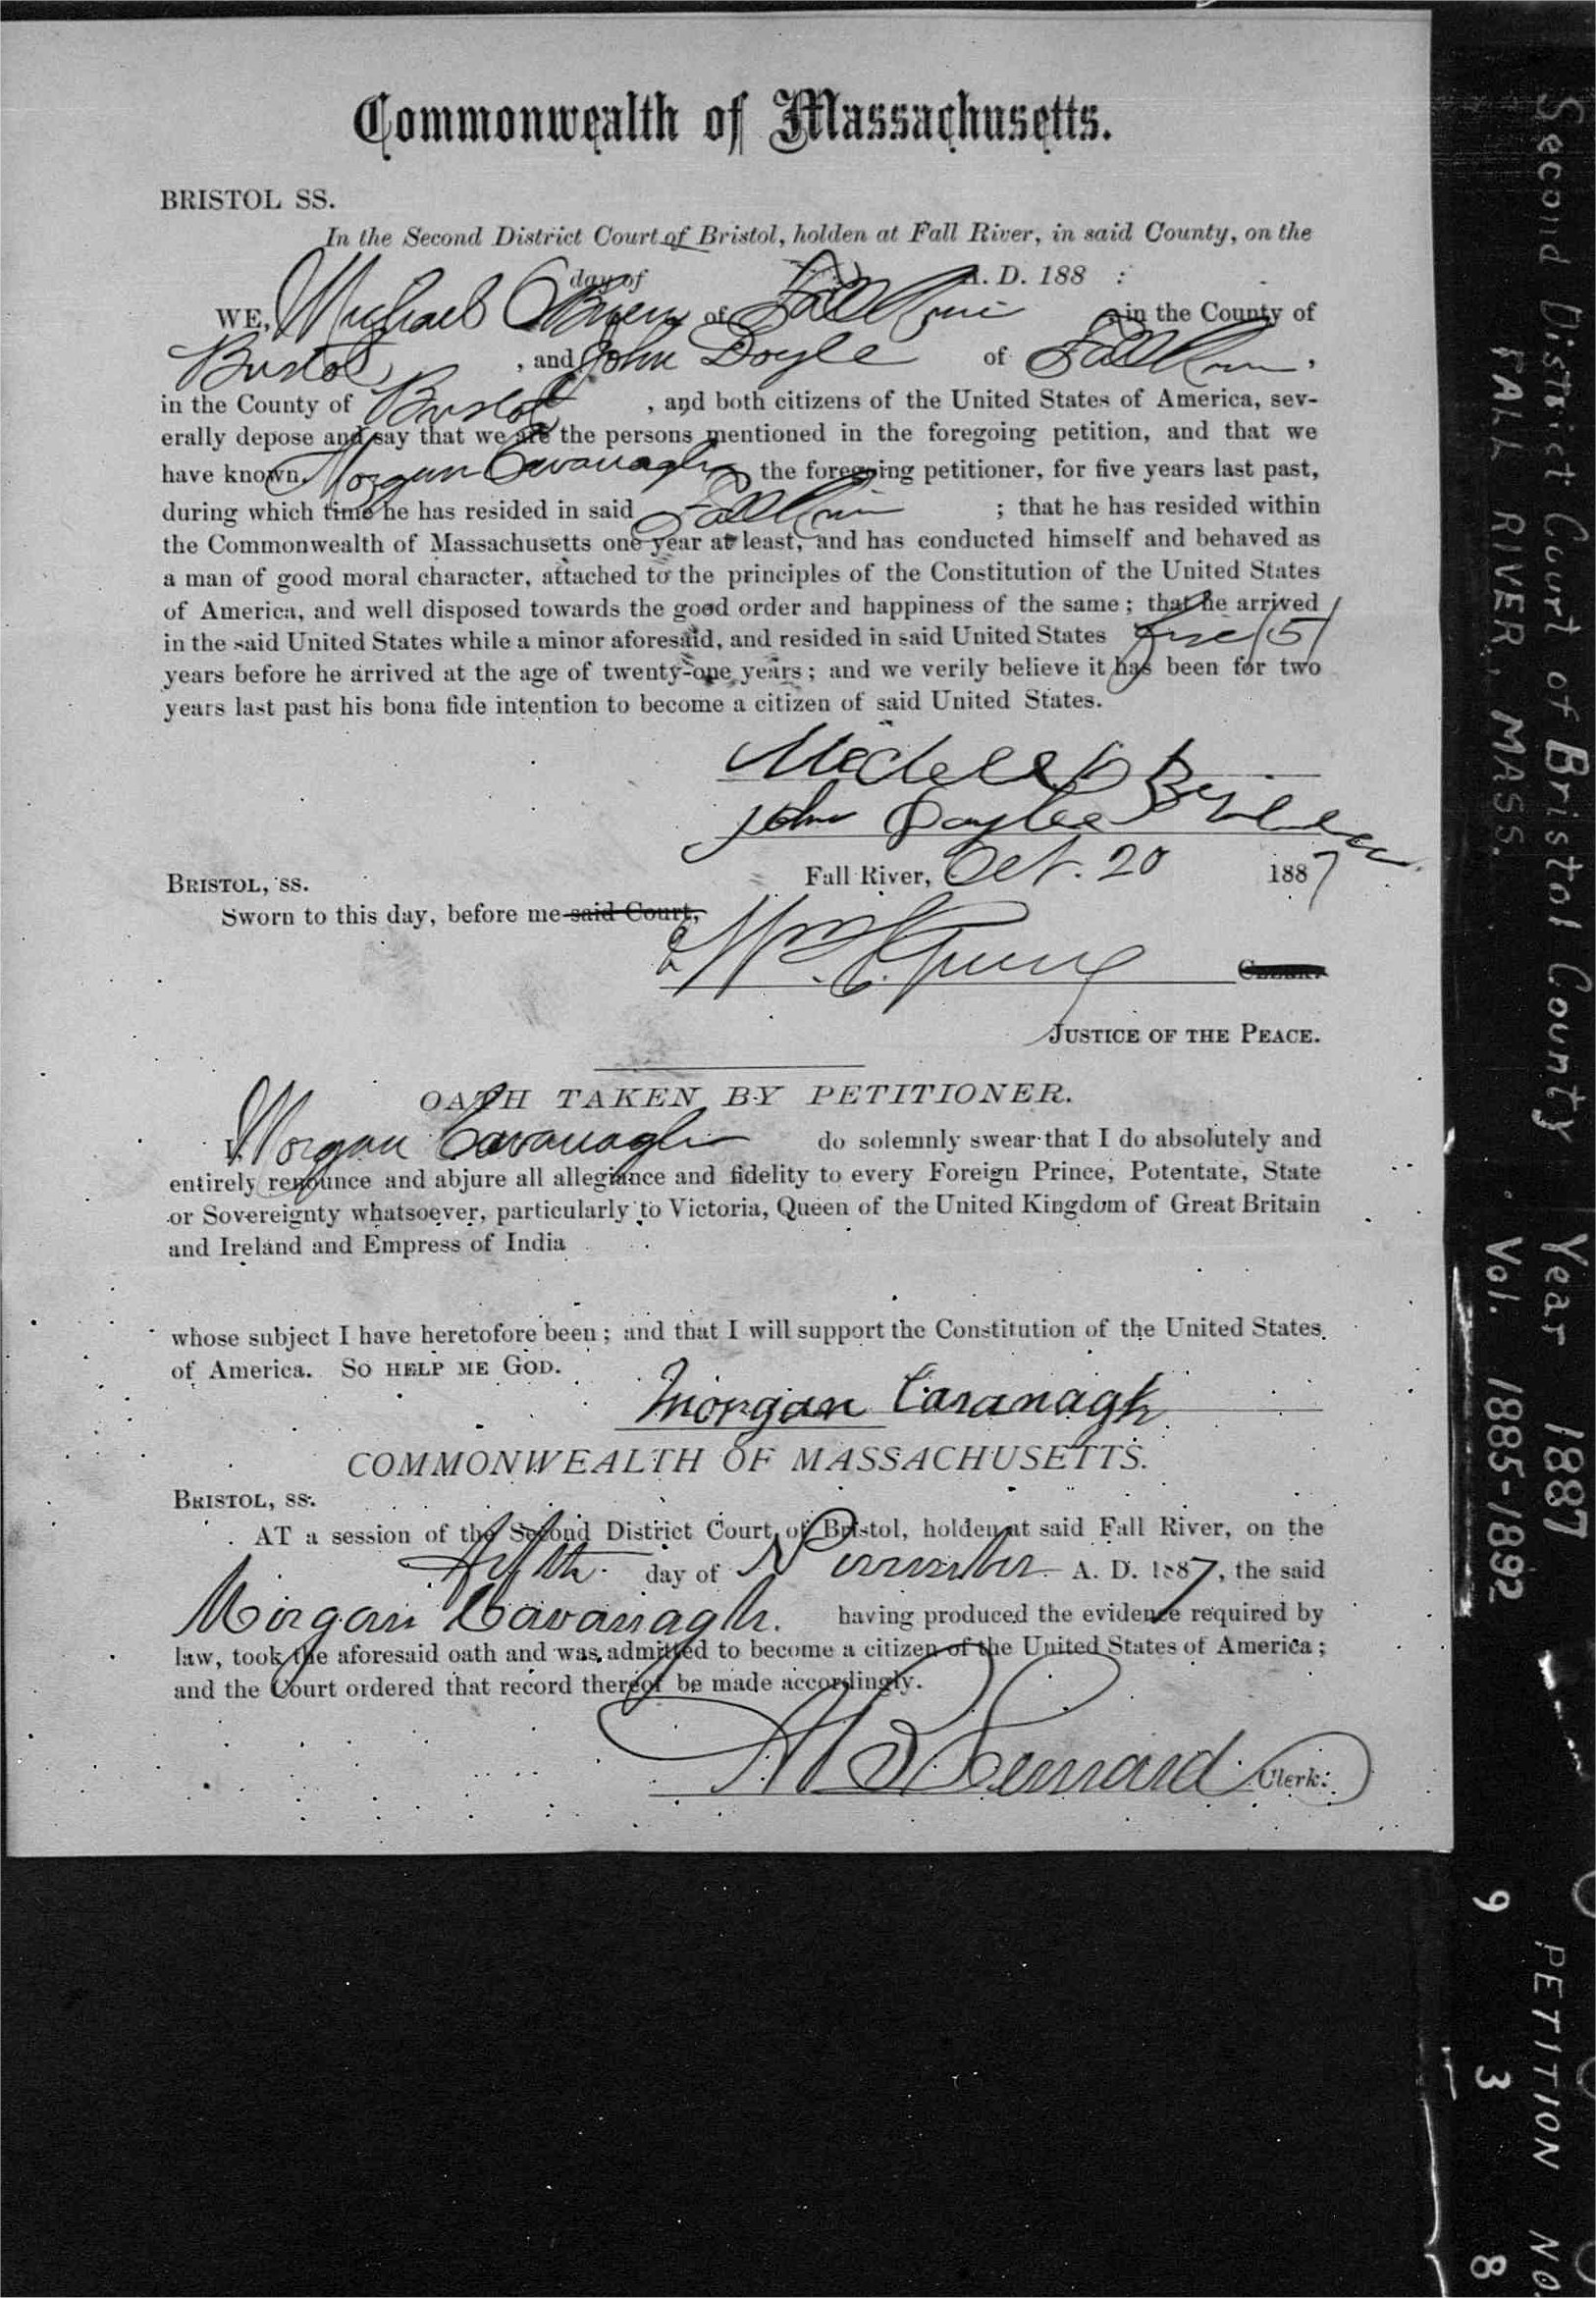 Commonwealth of Massachusetts.
BRISTOL SS.
In the Second District Court of Bristol, holden at Fall River, in said County, on the
day of A. D. 188 :
WE, Michael O'Brien of Fall River , in the County of
Bristol , and John Doyle of Fall River ,
in the County of Bristol , and both citizens of the United States of America, sev-
erally depose and say that we are the persons mentioned in the foregoing petition, and that we
have known Morgan Cavanagh the foregoing petitioner, for five years last past,
during which time he has resided in said Fall River ; that he has resided within
the Commonwealth of Massachusetts one year at least, and has conducted himself and behaved as
a man of good moral character, attached to the principles of the Constitution of the United States
of America, and well disposed towards the good order and happiness of the same ; that he arrived
in the said United States while a minor aforesaid, and resided in said United States five (5)
years before he arrived at the age of twenty-one years ; and we verily believe it has been for two
years last past his bona fide intention to become a citizen of said United States.
John Doyle
Fall River, Oct. 20 1887
BRISTOL, SS.
Sworn to this day, before me said Court,
CLERK.
JUSTICE OF THE PEACE.
OATH TAKEN BY PETITIONER.
Morgan Cavanagh do solemnly swear that I do absolutely and
entirely renounce and abjure all allegiance and fidelity to every Foreign Prince, Potentate, State
or Sovereignty whatsoever, particularly to Victoria, Queen of the United Kingdom of Great Britain
and Ireland and Empress of India
whose subject I have heretofore been ; and that I will support the Constitution of the United States
of America. SO HELP ME GOD.
Morgan Cavanagh
COMMONWEALTH OF MASSACHUSETTS.
BRISTOL, SS.
AT a session of the Second District Court of Bristol, holden at said Fall River, on the
fifth day of November A. D. 1887, the said
Morgan Cavanagh. having produced the evidence required by
law, took the aforesaid oath and was admitted to become a citizen of the United States of America ;
and the Court ordered that record thereof be made accordingly.
Clerk.
Second District Court of Bristol County Year 1887 PETITION NO.
FALL RIVER, MASS. Vol. 1885-1892 9 3 8